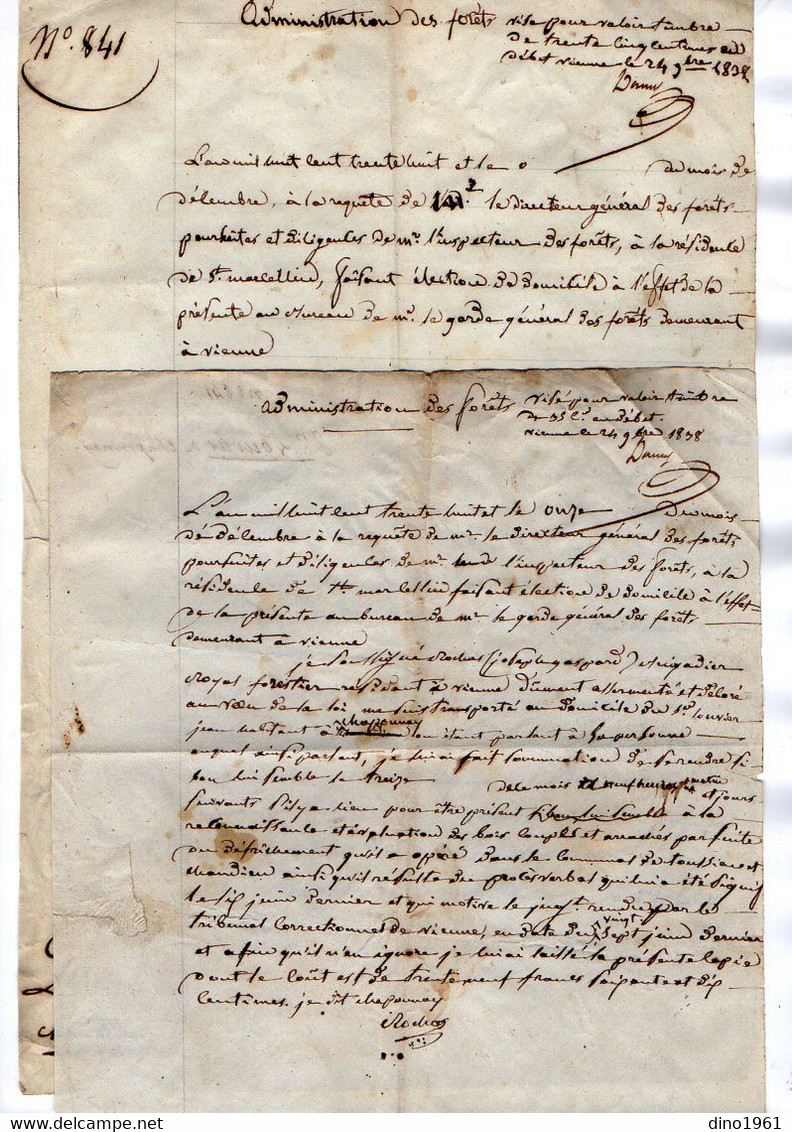 N°. 841
Administration des forêts
visé pour valoir timbre
de trente cinq centimes en
débet vienne le 24 9bre 1838
L'an mil huit cent trente huit et le du mois de
décembre, à la requête de le directeur général des forêts
poursuites et diligences de mr. l'inspecteur des forêts, à la résidence
de St. marcellin, faisant élection de domicile à l'effet de la
présente au bureau de mr. le garde général des forêts demeurant
à vienne
Administration des forêts
visé pour valoir timbre
de 35 c. en débet.
vienne le 24 9bre 1838
L'an mil huit cent trente huit et le onze du mois
de décembre à la requête de mr. le directeur général des forêts
poursuites et diligences de mr. l'inspecteur des forêts, à la
résidence de St. marcellin faisant élection de domicile à l'effet
de la présente au bureau de mr le garde général des forêts
demeurant à vienne
je soussigné Rochas (joseph gaspard) Brigadier
Royal forestier résidant à vienne dûment assermenté et
au vœu de la loi me suis transporté au domicile du Sr.
jean habitant à chaponnay où étant parlant à sa personne
auquel ainsi parlant, je lui ai fait sommation de se rendre si
bon lui semble le treize de ce mois neuf heures et jours
suivants s'il y a lieu pour être présent si bon lui semble à la
reconnaissance et évaluation des bois coupés et arrachés par suite
du défrichement qu'il a opéré dans les communes de toussieu et
chandieu ainsi qu'il résulte du procès verbal qui lui a été signifié
le six juin dernier et qui motive le jugt. rendu par le
tribunal Correctionnel de vienne, en date du vingt sept juin dernier
et afin qu'il n'en ignore je lui ai laissé la présente copie
dont le coût est de trente neuf francs soixante et dix
centimes. je dit chaponnay
Rochas
dino1961